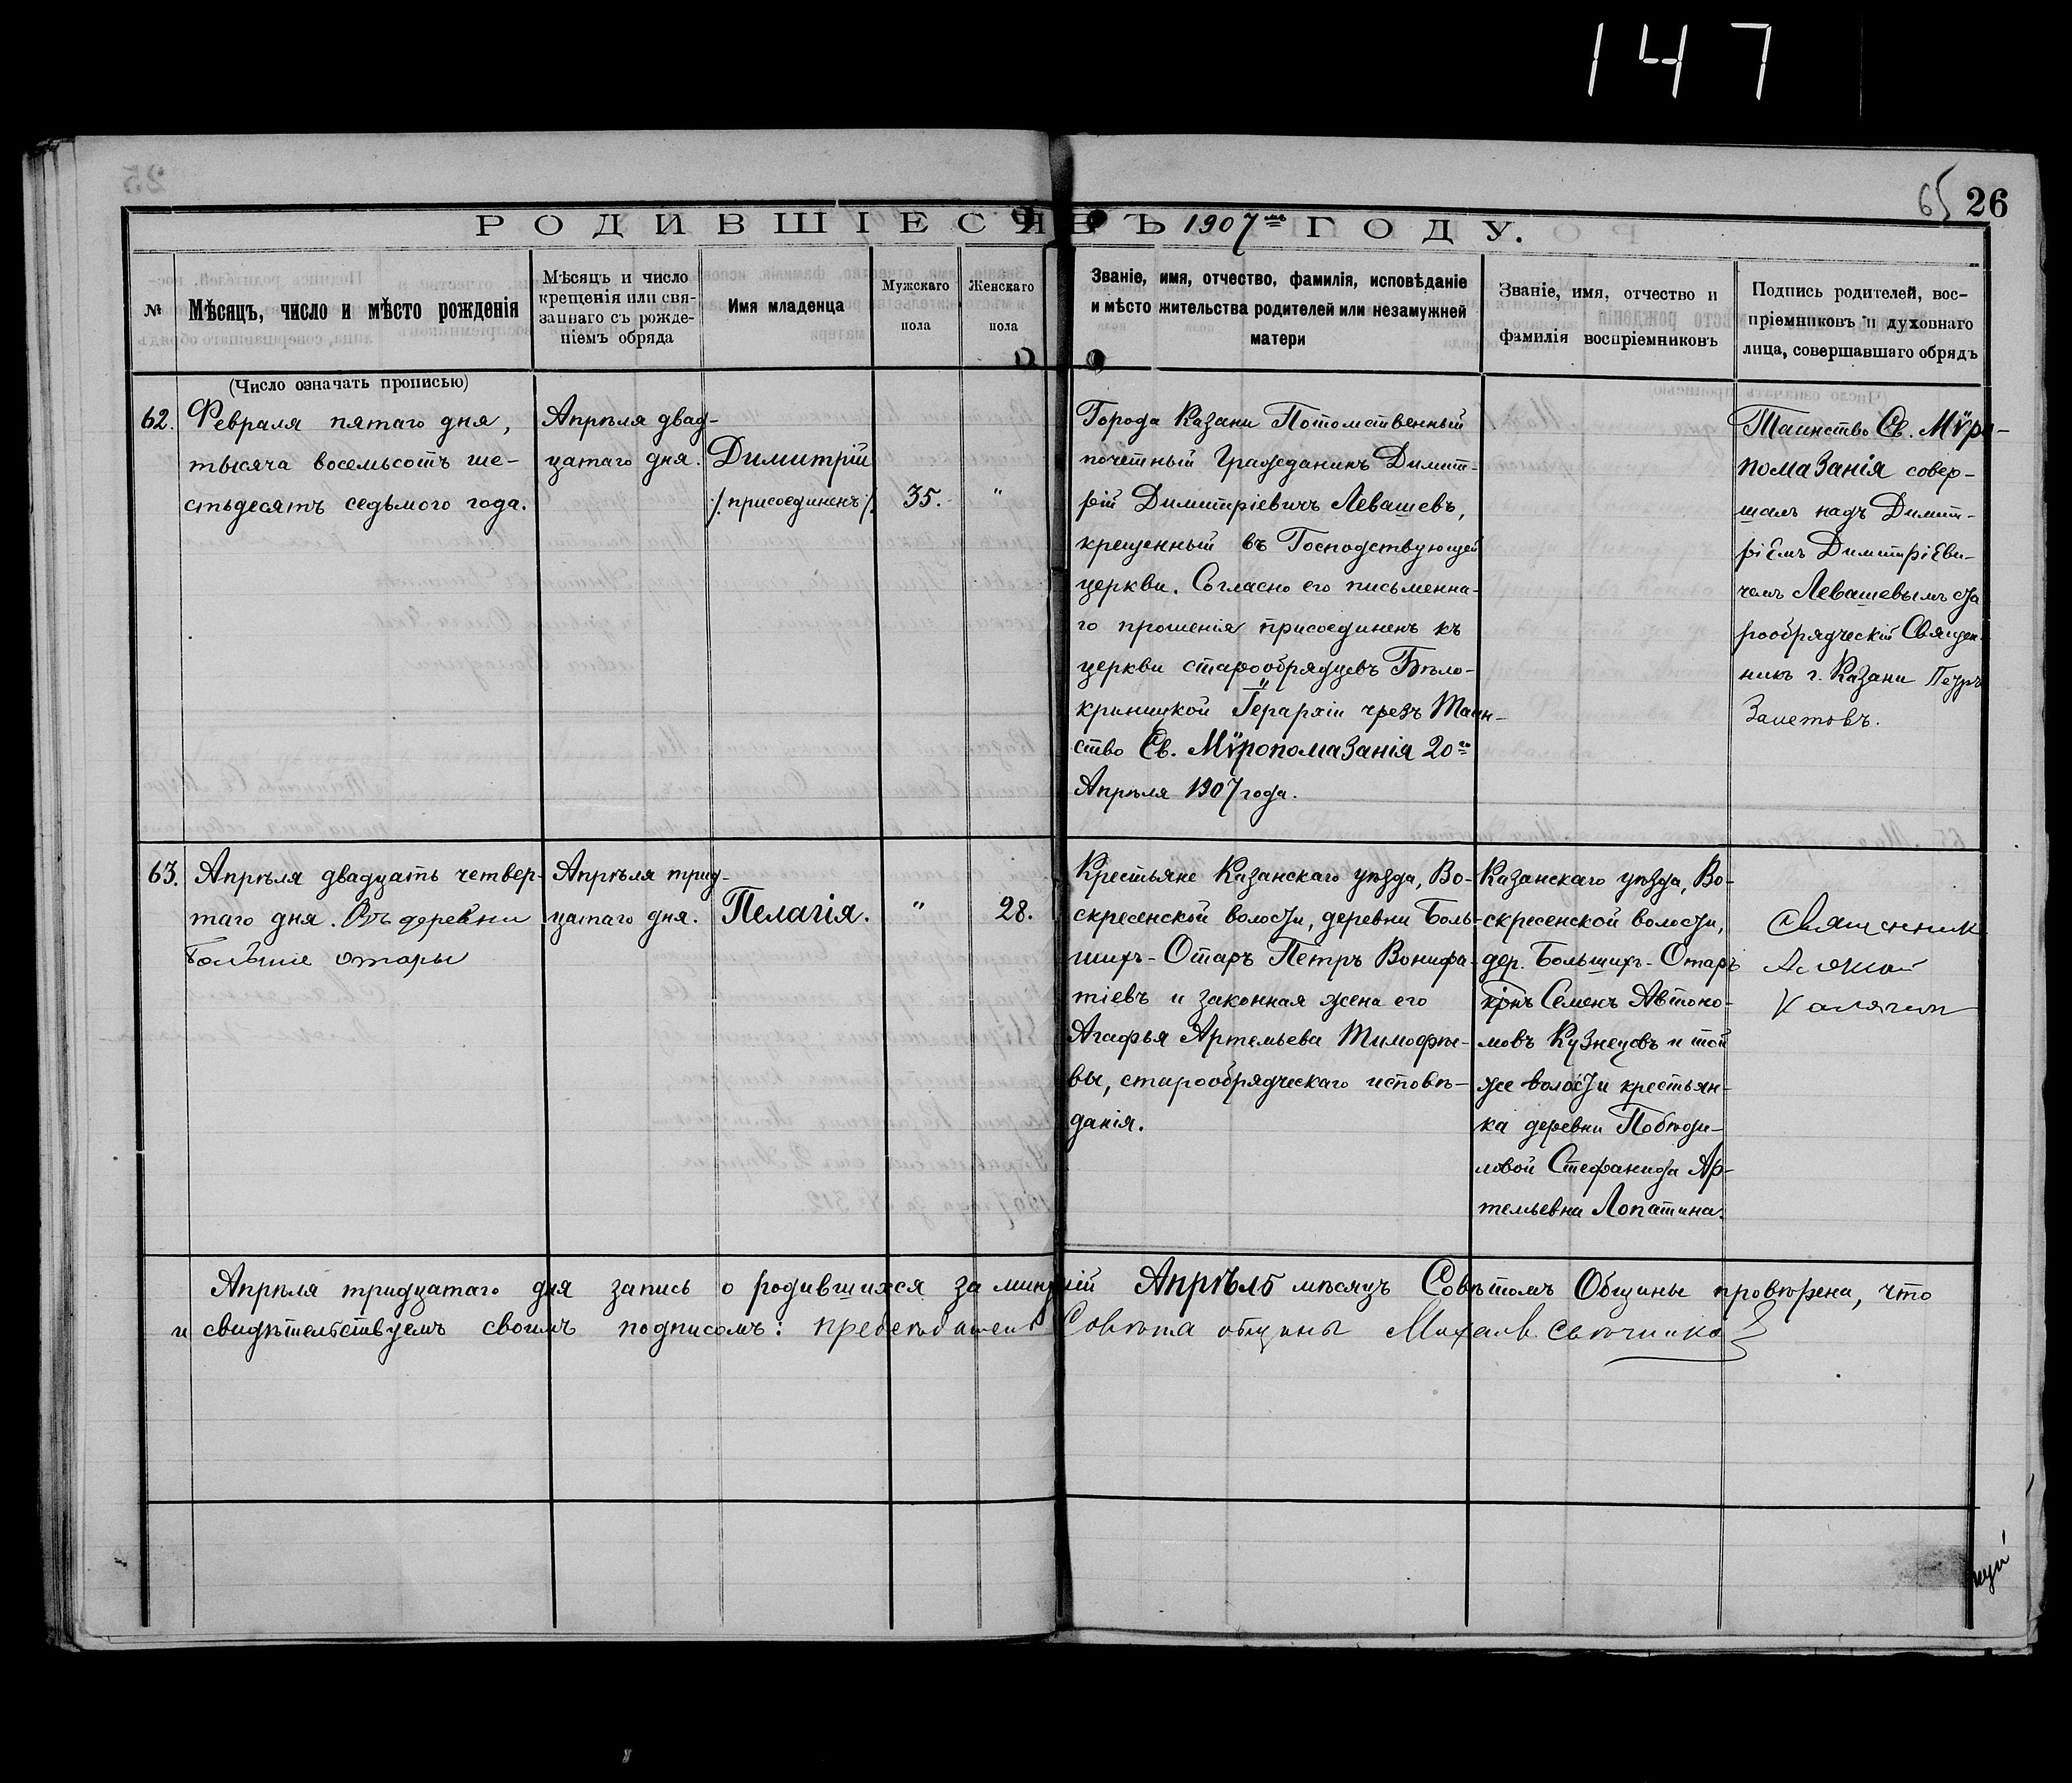 147
65 26
РОДИВШІЕСЯ ВЪ 1907мъ ГОДУ.
№
Мѣсяцъ, число и мѣсто рожденія
Мѣсяцъ и число
крещенія или свя-
заннаго съ рожде-
ніемъ обряда
Имя младенца
Мужскаго
пола
Женскаго
пола
Званіе, имя, отчество, фамилія, исповѣданіе
и мѣсто жительства родителей или незамужней
матери
Званіе, имя, отчество и
фамилія воспріемниковъ
Подпись родителей, вос-
пріемниковъ и духовнаго
лица, совершавшаго обрядъ
(Число означать прописью)
62.
Февраля пятаго дня,
тысяча восемьсотъ ше-
стьдесятъ седьмого года.
Апрѣля двад-
цатаго дня.
Димитрій
/присоединенъ/.
35.
"
Города Казани Потомственный
почетный Гражданинъ Димит-
рій Димитріевичъ Левашевъ,
крещенный въ Господствующей
церкви. Согласно его письменна-
го прошенія присоединенъ къ
церкви старообрядцевъ Бѣло-
криницкой Іерархіи чрезъ Таин-
ство Св. Мѵропомазанія 20го
Апрѣля 1907 года.
Таинство Св. Мѵро-
помазанія совер-
шалъ надъ Димит-
ріемъ Димитріеви-
чемъ Левашевымъ ста
рообрядческій Священ-
никъ г. Казани Петръ
Залетовъ.
63.
Апрѣля двадцать четвер-
таго дня. Въ деревни
Большіе отары
Апрѣля трид-
цатаго дня.
Пелагія.
"
28.
Крестьяне Казанскаго уѣзда, Во-
скресенской волости, деревни Боль-
шихъ-Отаръ Петръ Вонифа-
тіевъ и законная жена его
Агафья Артемьева Тимофѣе-
вы, старообрядческаго исповѣ-
данія.
Казанскаго уѣзда, Во-
скресенской волости,
дер. Большихъ-Отаръ
крнъ Семенъ Автоно-
мовъ Кузнецовъ и той
же волости крестьян-
ка деревни Побѣди-
ловой Стефанида Ар-
темьевна Лопатина.
Священник
Калягин
Апрѣля тридцатаго дня запись о родившихся за минувшій Апрѣль мѣсяцъ Совѣтомъ Общины провѣрена, что
и свидѣтельствуемъ своимъ подписомъ: председатель Совета общины